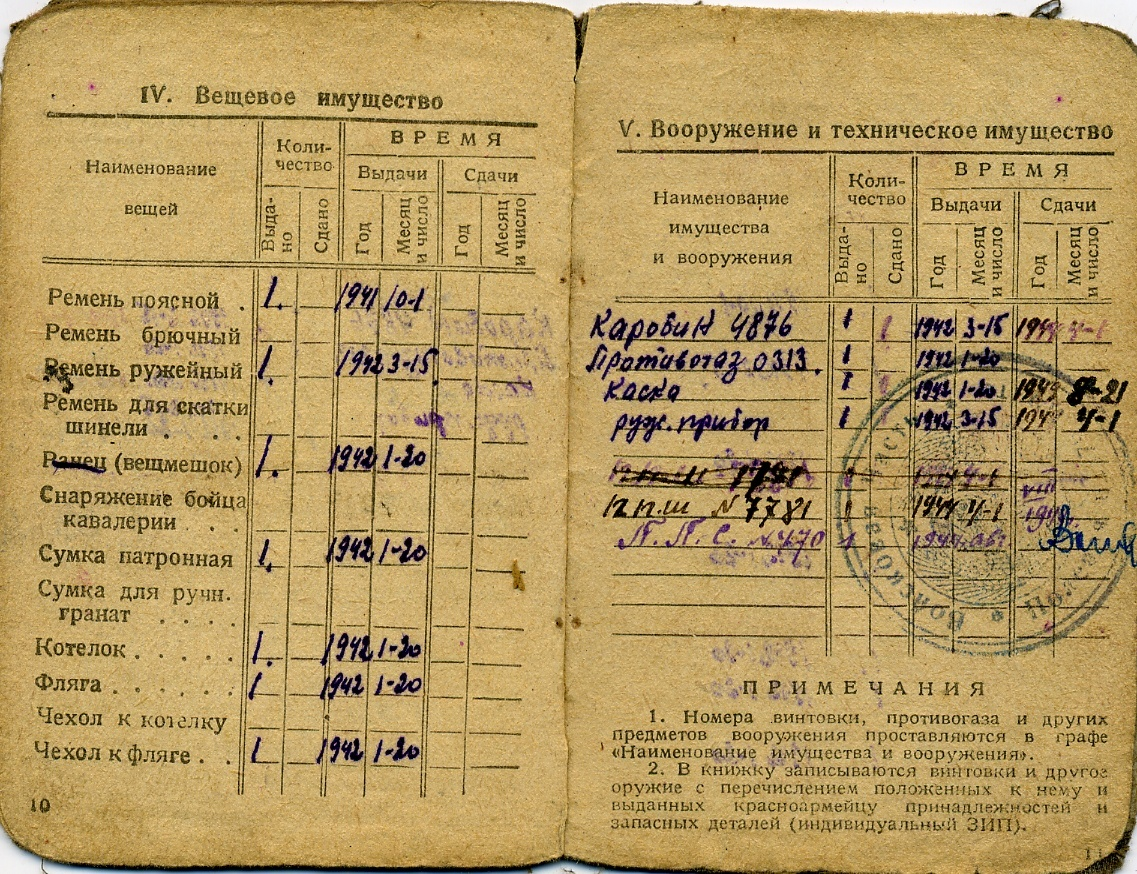 IV. Вещевое имущество
Наименование вещей
Коли-
чество
ВРЕМЯ
Выдачи
Сдачи
Выда-
но
Сдано
Год
Месяц
и число
Год
Месяц
и число
Ремень поясной . 1. 1941 10-1
Ремень брючный
Ремень ружейный 1. 1942 3-15
Ремень для скатки
шинели . . .
Ранец (вещмешок) 1. 1942 1-20
Снаряжение бойца
кавалерии . .
Сумка патронная 1. 1942 1-20
Сумка для ручн.
гранат . . . .
Котелок . . . . . 1. 1942 1-20
Фляга . . . . . . 1 1942 1-20
Чехол к котелку
Чехол к фляге . . 1 1942 1-20
10
V. Вооружение и техническое имущество
Наименование
имущества
и вооружения
Коли-
чество
ВРЕМЯ
Выдачи
Сдачи
Выда-
но
Сдано
Год
Месяц
и число
Год
Месяц
и число
Каробин 4876 1 1 1942 3-15 1944 4-1
Противогаз 0313. 1 1942 1-20
Каска 1 1 1942 1-20 1945 8-21
руж. прибор 1 1942 3-15 1944 4-1
ппш N 7781 1 1944 4-1
П.П.С. N 470 1
ПРИМЕЧАНИЯ
1. Номера винтовки, противогаза и других
предметов вооружения проставляются в графе
«Наименование имущества и вооружения».
2. В книжку записываются винтовки и другое
оружие с перечислением положенных к нему и
выданных красноармейцу принадлежностей и
запасных деталей (индивидуальный ЗИП).
11